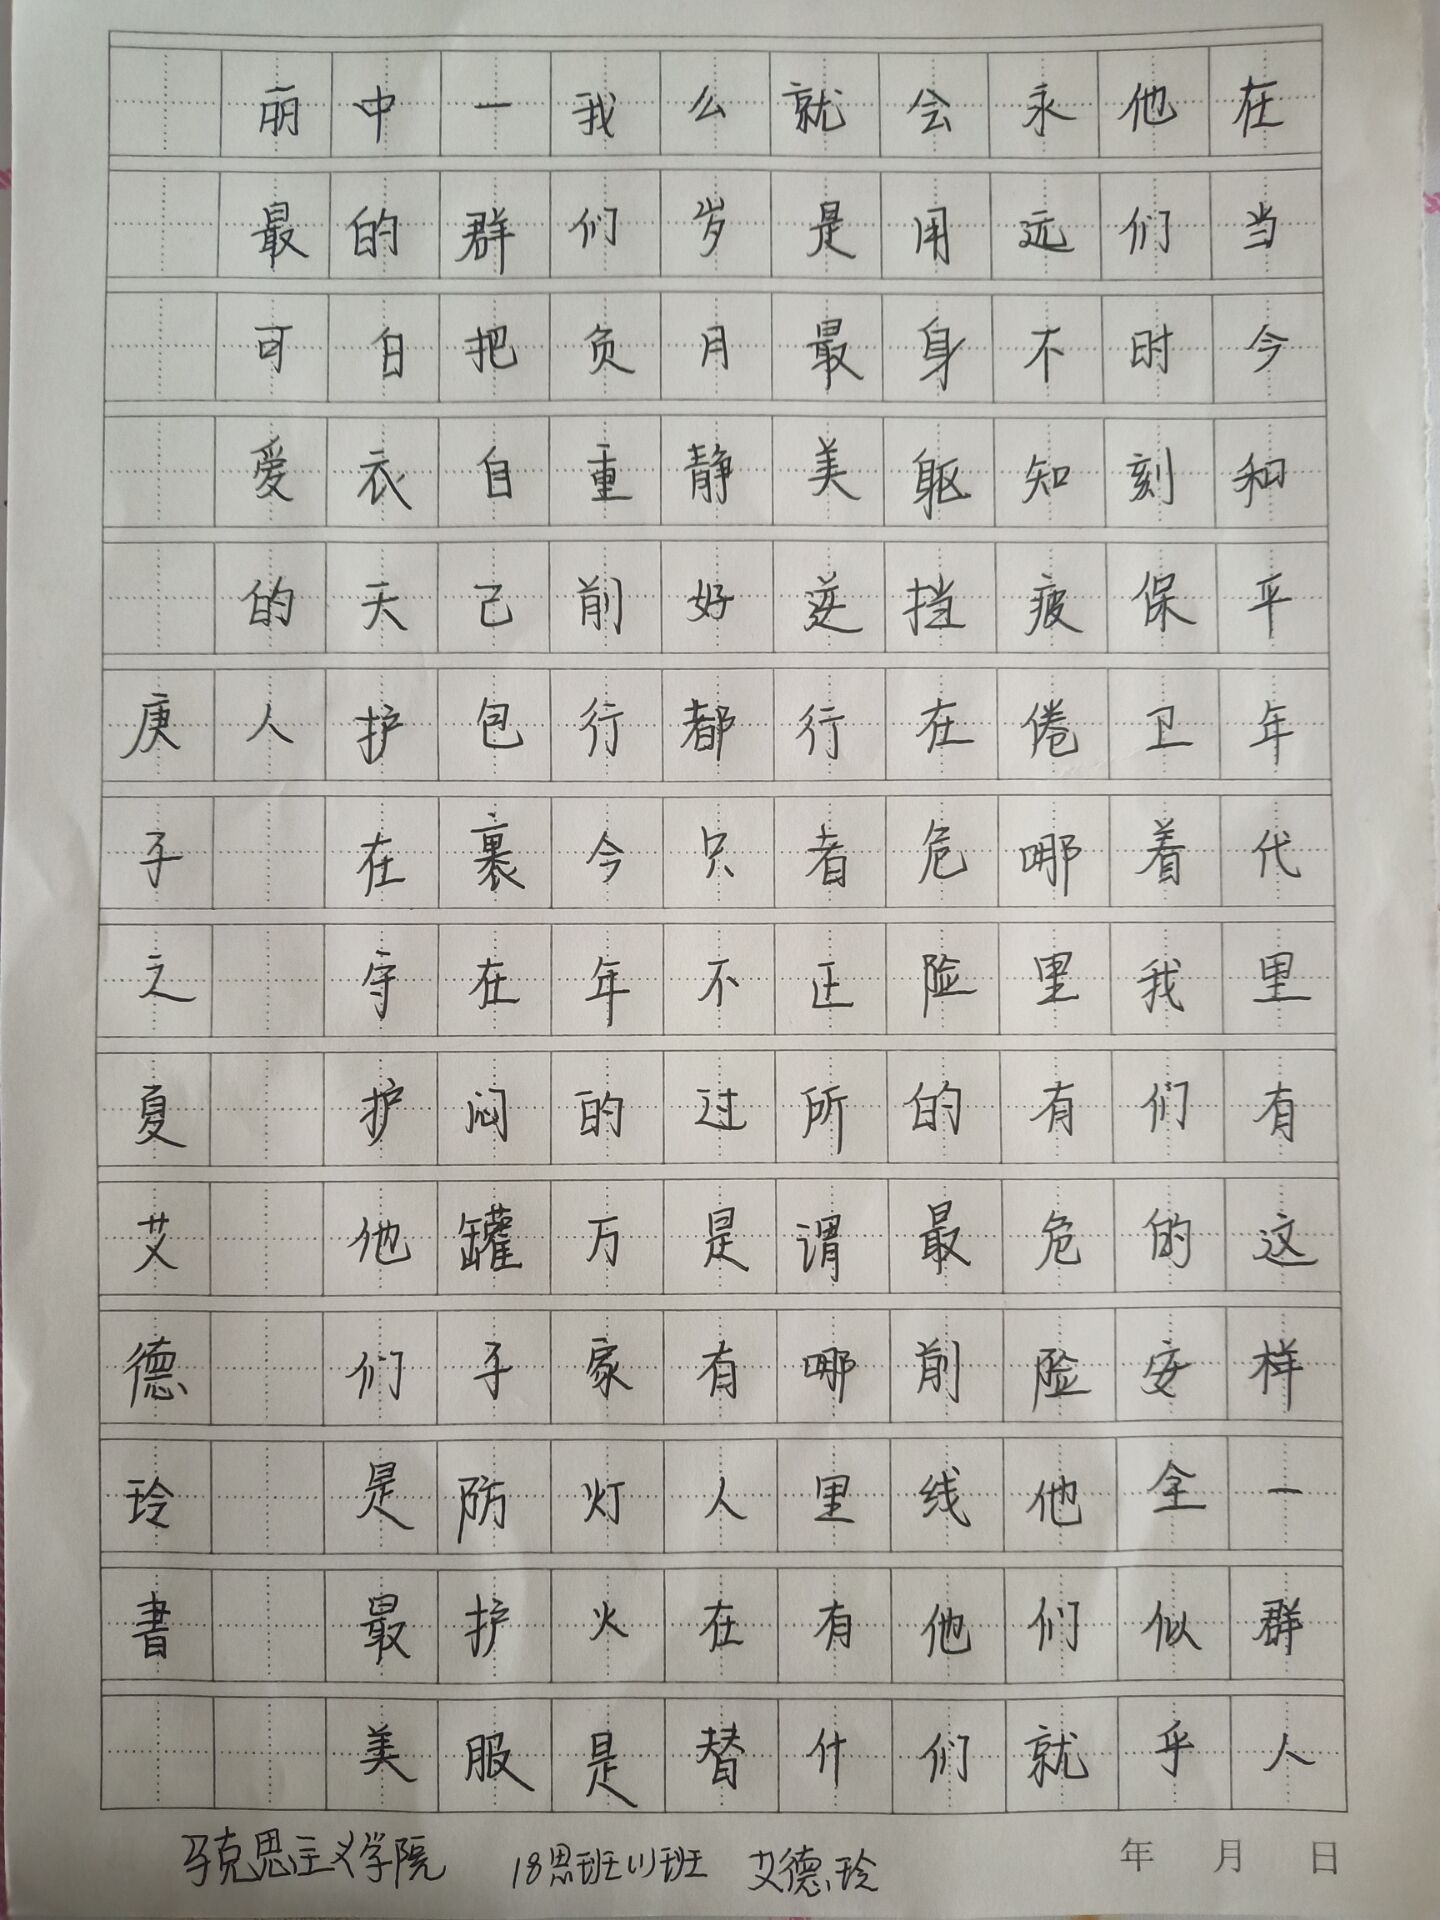 在当今和平年代里有这样一群人
他们时刻保卫着我们的安全似乎
永远不知疲倦哪里有危险他们就
会用身躯挡在危险的最前线他们
就是最美逆行者正所谓哪里有什
么岁月静好都只不过是有人在替
我们负重前行今年的万家灯火是
一群把自己包裹在闷罐子防护服
中的白衣天护在守护他们是最美
丽最可爱的人
庚子之夏艾德玲書
马克思主义学院 18思班(1)班 艾德玲
年 月 日